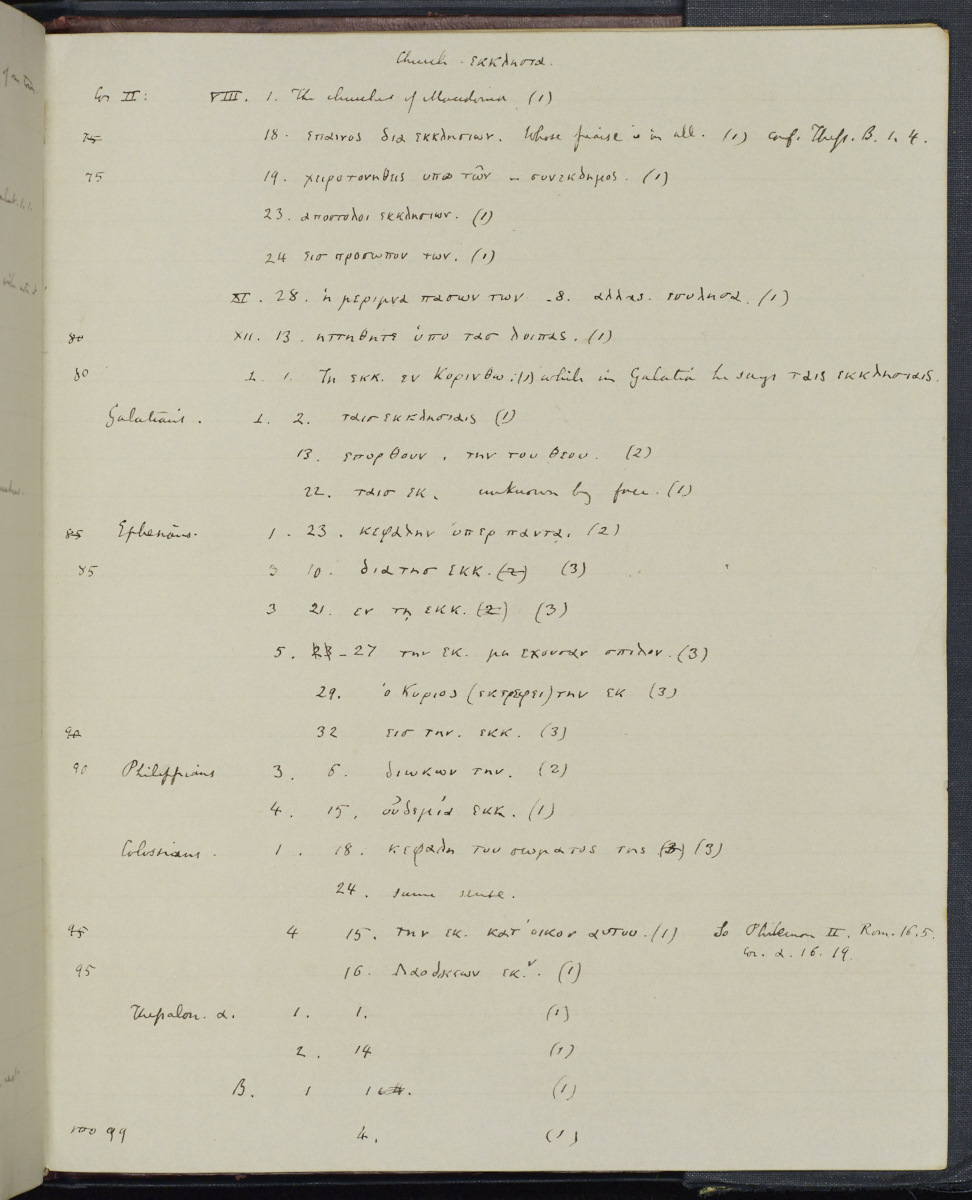 Church . εκκλησια.
Cor II: VIII. 1. The churches of Macedonia (1)
75 18. επαινος δια εκκλησιων. Whose praise is in all. (1) conf. Thess. B. 1. 4.
75 19. χειροτονηθεις υπο τῶν - συνεκδημος. (1)
23. αποστολοι εκκλησιων. (1)
24 εισ προσωπον των. (1)
XI. 28. ἡ μεριμνα πασων των -8. αλλας. εσυλησα. (1)
80 XII. 13. ηττηθητε ὑπο τασ λοιπας. (1)
80 1. 1. Τη εκκ. εν Κορινθω :(1) while in Galatia he says ταις εκκλησιαις.
Galatians. 1. 2. ταισ εκκλησιαις (1)
13. επορθουν . την του θεου. (2)
22. ταισ εκ. unknown by face. (1)
85 Ephesians. 1. 23. κεφαλην ὑπερ παντα. (2)
85 3 10. δια τησ εκκ. (2) (3)
3 21. εν τῃ εκκ. (2) (3)
5. 23 - 27 την εκ. μη εχουσαν σπιλον. (3)
29. ὁ Κυριος (εκτρεφει) την εκ (3)
90 32 εισ την. εκκ. (3)
90 Philippians 3. 6. διωκων την. (2)
4. 15. οὐδεμία εκκ. (1)
Colossians. 1. 18. κεφαλη του σωματος της (3) (3)
24. same sense.
95 4 15. την εκ. κατ' οικον αυτου. (1) So Philemon II. Rom. 16.5.
Cor. α. 16. 19.
95 16. Λαοδικεων εκ.ν. (1)
Thessalon. α. 1. 1. (1)
2. 14 (1)
B. 1 1 (1)
100 99 4. (1)